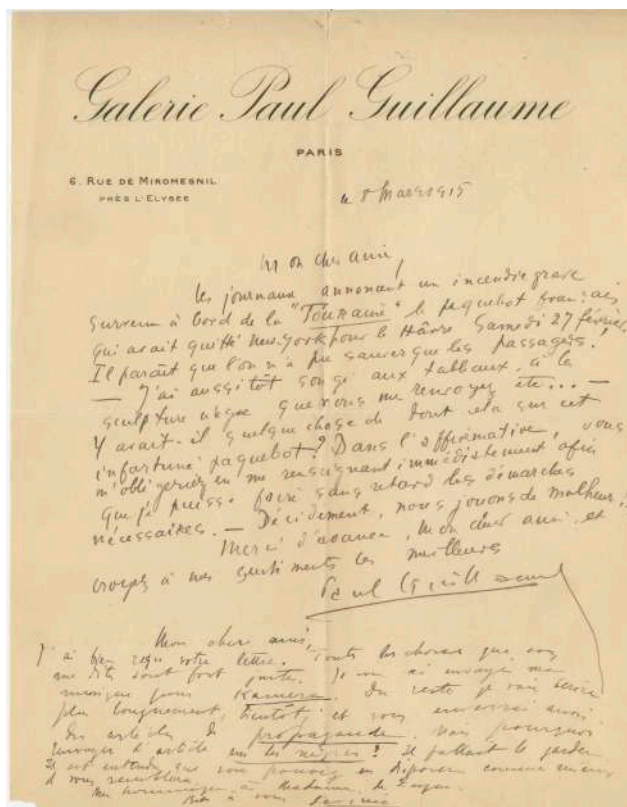 Galerie Paul Guillaume
PARIS
6. RUE DE MIROMESNIL
PRÈS L'ELYSÉE
le 8 Mars 1915
Mon cher ami,
les journaux annoncent un incendie grave
survenu à bord de la "Touraine" le paquebot français
qui avait quitté New-York pour le Hâvre Samedi 27 février.
Il paraît que l'on n'a pu sauver que les passagers.
— J'ai aussitôt songé aux tableaux, à la
sculpture nègre que vous me renvoyez etc... —
Y avait-il quelque chose de tout cela sur cet
infortuné paquebot? Dans l'affirmative, vous
m'obligeriez en me renseignant immédiatement afin
que je puisse faire sans retard les démarches
nécessaires. — Décidement, nous jouons de malheur!
Merci d'avance, mon cher ami, et
croyez à mes sentiments les meilleurs
Paul Guillaume
Mon cher ami,
J'ai bien reçu votre lettre. Toutes les choses que vous
me dites sont fort justes. Je vous ai envoyé ma
musique pour Kamera. Du reste je vais écrire
plus longuement, bientôt, et vous enverrai aussi
des articles de propagande. Mais pourquoi
envoyer l'article sur les nègres? Il fallait le garder
Il est entendu que vous pouvez en disposer comme mieux
il vous semblera.
Mes hommages à Madame de Zayas.
Bien à vous Savinio